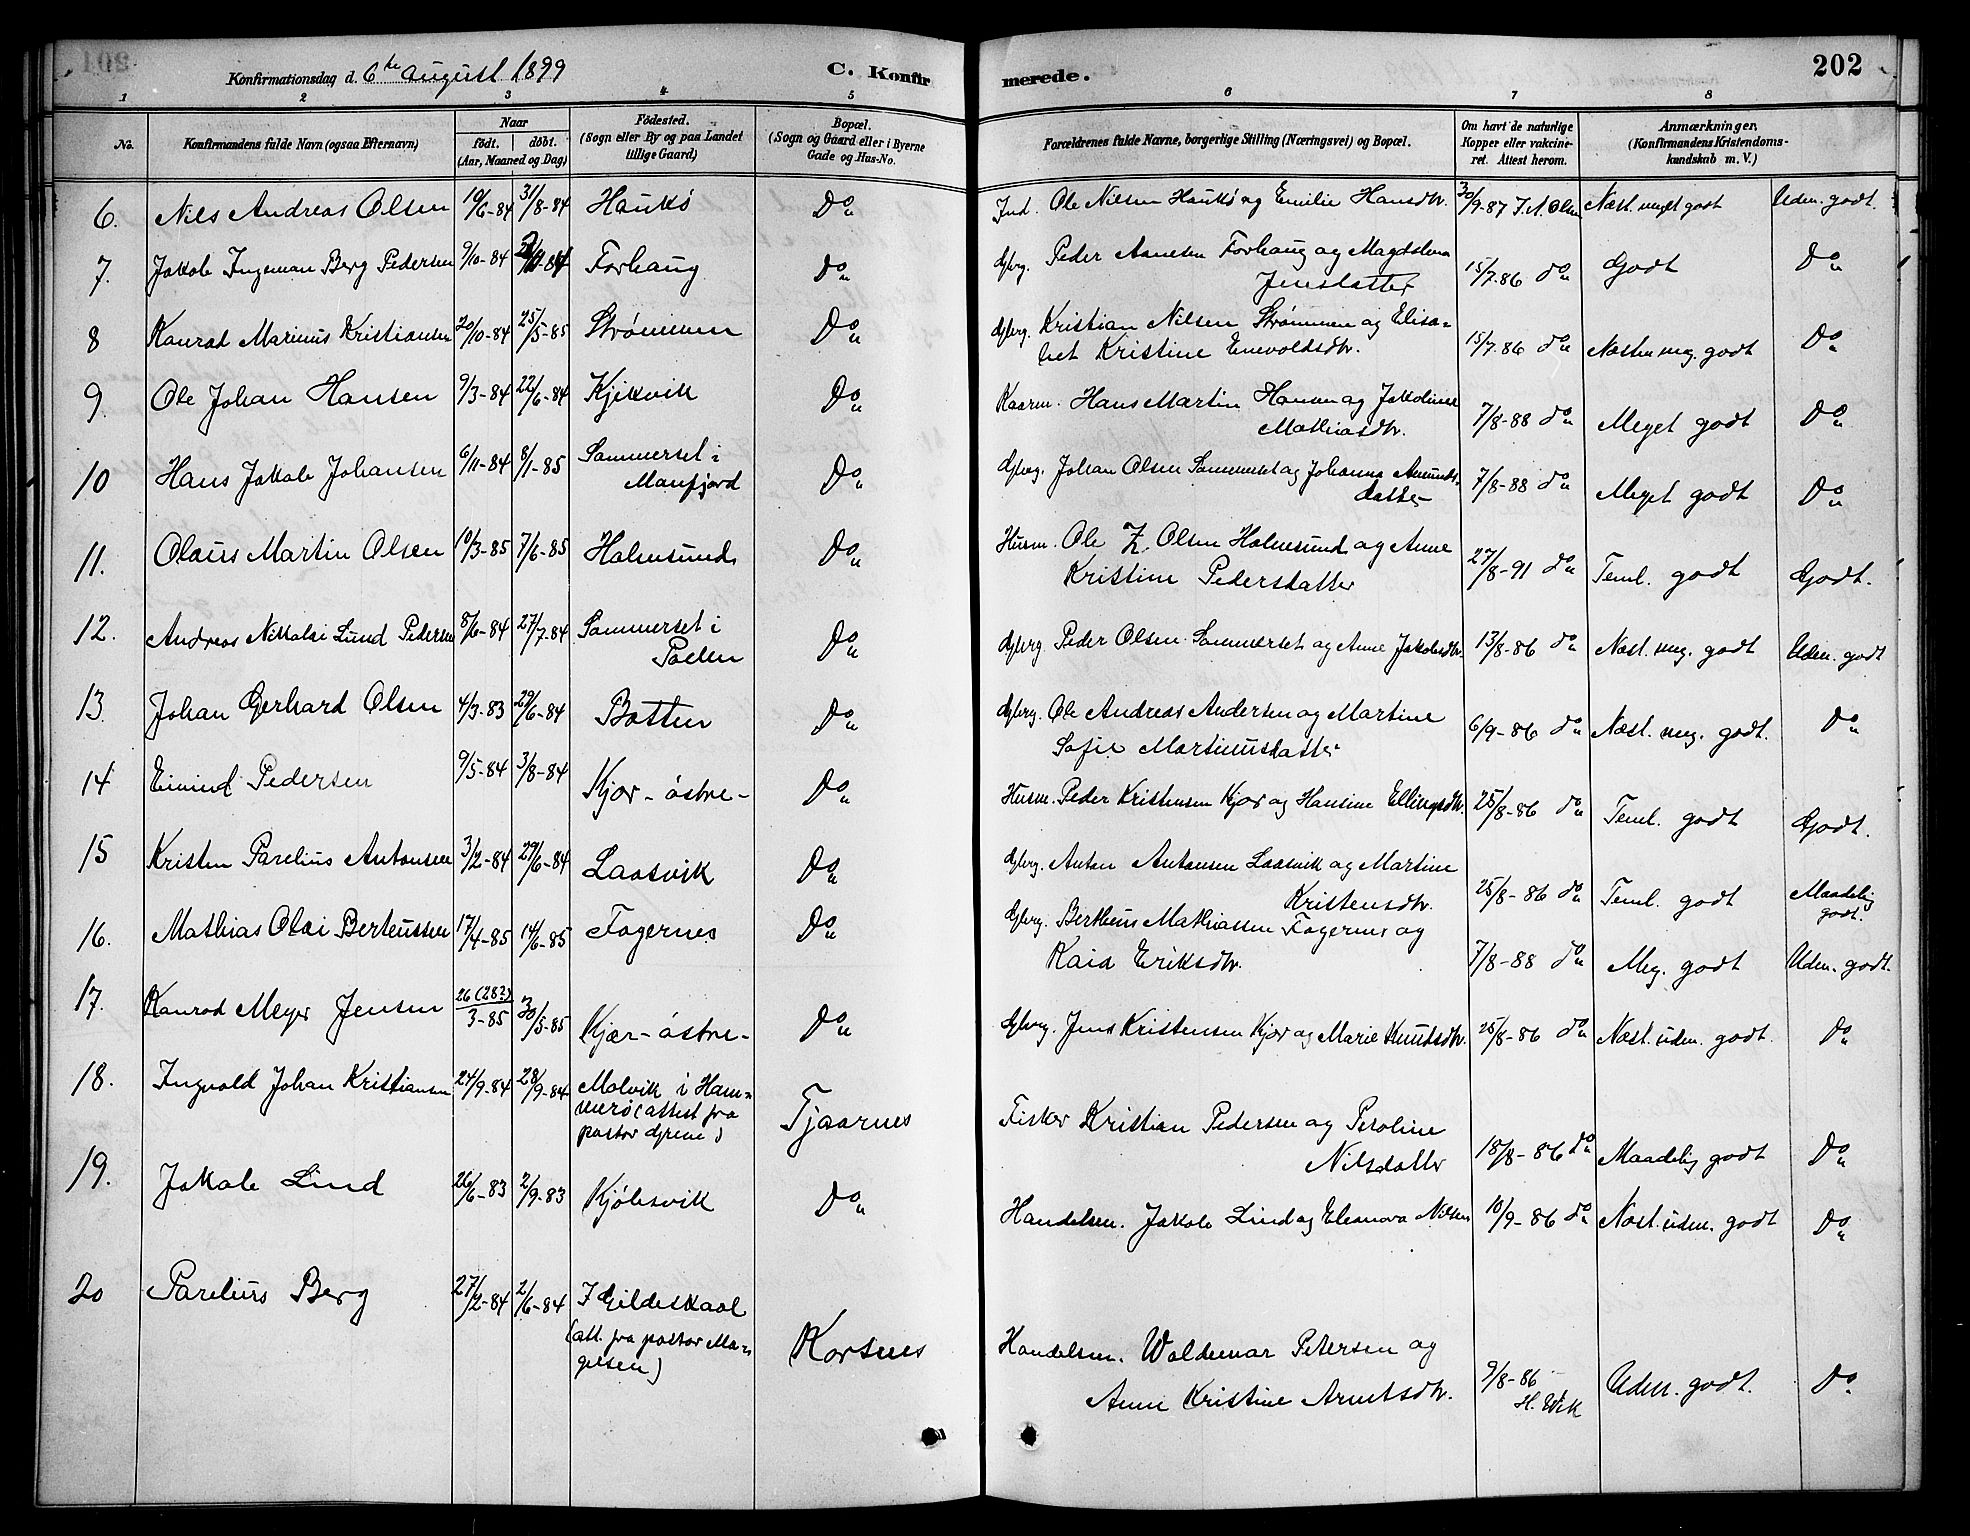 Konfirmationsdag d. 6te august 1899 C. Konfirmerede. 202
1 2 3 4 5 6 7 8
No. Konfirmandens fulde Navn (ogsaa Efternavn) Naar født. døbt. (Aar, Maaned og Dag) Fødested. (Sogn eller By og paa Landet tillige Gaard) Bopæl. (Sogn og Gaard eller i Byerne Gade og Hus-No. Forældrenes fulde Navne, borgerlige Stilling (Næringsvei) og Bopæl. Om havt de naturlige Kopper eller vakcineret. Attest herom. Anmærkninger. (Konfirmandens Kristendomskundskab m. V.)
6. Nils Andreas Olsen 10/6-84 31/8-84 Haukø Do Ind. Ole Nilsen Haukø og Emilie Hansdtr. 30/9-87 J. A. Olsen Næst. meget godt Uden. godt.
7. Jakob Ingeman Berg Pedersen 9/10-84 Forhaug Do Gbrg. Peder Forhaug og Magdalena
Jensdatter 15/7-86 do Godt Do
8 Konrad Marinus Kristiansen 20/10-84 25/5-85 Strømmen Do Gbrg. Kristian Nilsen Strømmen og Elisa-
bet Kristine Enevoldsdtr. 15/7-86 do Næsten meg. godt Do
9. Ole Johan Hansen 9/3-84 22/6-84 Kjikvik Do Kaarm. Hans Martin Hansen og Jakobine
Mathiasdtr. 7/8-88 do Meget godt Do
10 Hans Jakob Johansen 6/11-84 8/1-85 Sammerset i
Manfjord Do Gbrg. Johan Olsen Sammerset og Johanna Amunds-
datter 7/8-88 do Meget godt Do
11. Olaus Martin Olsen 10/3-85 7/6-85 Holmsund Do Husm. Ole Z. Olsen Holmsund og Anne
Kristine Pedersdatter 27/8-91 do Teml. godt Godt.
12. Andreas Nikolai Lund Pedersen 8/6-84 27/7-84 Sammerset i
Pollen Do Gbrg. Peder Olsen Sammerset og Anne Jakobsdtr. 13/8-86 do Næst. meg. godt Uden. godt
13. Johan Gerhard Olsen 4/3-83 29/6-84 Botten Do Gbrg. Ole Andreas Andersen og Martine
Sofie Martinusdatter 6/9-86 do Næst. meg. godt. Do
14 Eivind Pedersen 9/5-84 3/8-84 Kjær-østre- Do Husm. Peder Kristensen Kjær og Hansine Ellingsdtr. 25/8-86 do Teml. godt Godt.
15 Kristen Parelius Antonsen 3/2-84 29/6-84 Laasvik Do Gbrg. Anton Antonsen Laasvik og Martine
Kristensdtr. 25/8-86 do Teml. godt Maadelig godt.
16. Mathias Olai Berteussen 17/4-85 14/6-85 Fagernes Do Gbrg. Bertheus Mathiassen Fagernes og
Kaia Eriksdtr. 7/8-88 do Meg. godt Uden. godt.
17. Konrad Meyer Jensen 26 (28?)/3-85 30/5-85 Kjær-østre- Do Gbrg. Jens Kristensen Kjær og Marie Knudsdtr. 25/8-86 do Næst. uden. godt. Do
18. Ingvald Johan Kristiansen 24/9-84 28/9-84 Molvik i Ham-
merø (attest fra
pastor Grene) Tjaarnes Fisker Kristian Pedersen og Peroline
Nilsdatter 18/8-86 do Maadelig godt Do
19. Jakob Lind 26/6-83 2/9-83 Kjøbsvik Do Handelsm. Jakob Lind og Eleanora Nilsen 10/9-86 do Næst. uden. godt Do
20 Parelius Berg 27/2-84 2/6-84 I Gildeskaal
(att. fra pastor Ma-
gelsen) Korsnes Handelsm. Waldemar Petersen og
Anne Kristine Arntsdtr. 9/8-86 H. Wik Uden. godt. Do